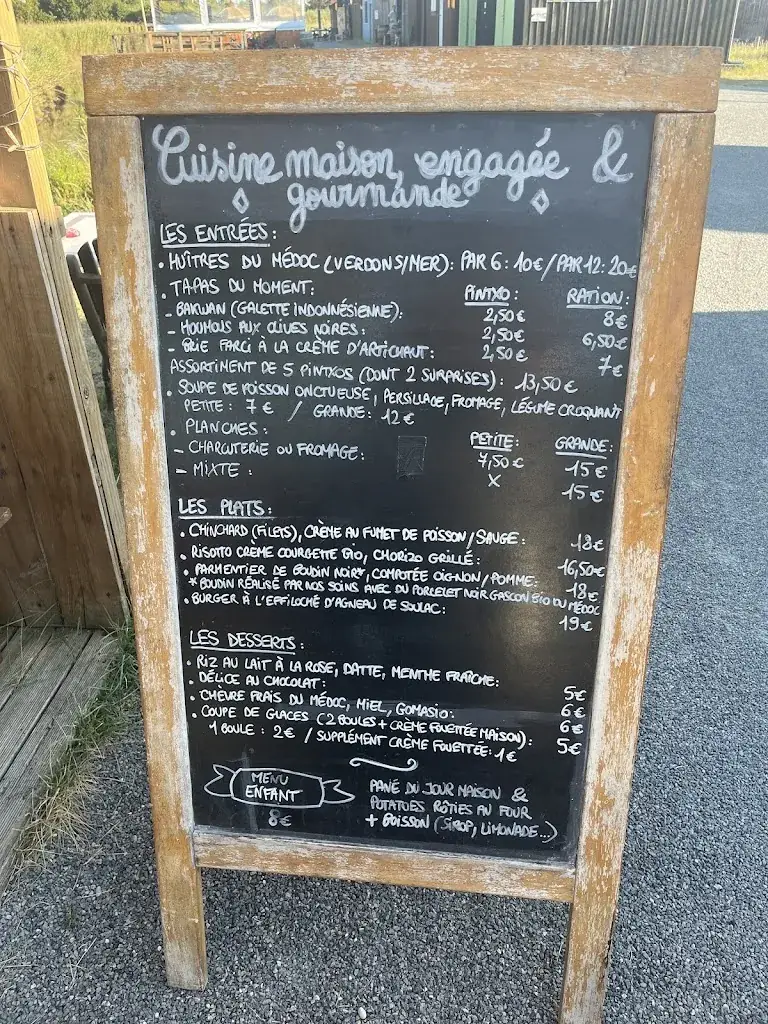 Cuisine maison, engagée &
gourmande
LES ENTRÉES :
• HUÎTRES DU MÉDOC (VERDON S/MER) : PAR 6 : 10€ / PAR 12 : 20€
• TAPAS DU MOMENT : PINTXO : RATION :
- BAKWAN (GALETTE INDONNÉSIENNE) : 2,50€ 8€
- HOUMOUS AUX OLIVES NOIRES : 2,50€ 6,50€
- BRIE FARCI À LA CRÈME D'ARTICHAUT : 2,50€ 7€
ASSORTIMENT DE 5 PINTXOS (DONT 2 SURPRISES) : 13,50€
• SOUPE DE POISSON ONCTUEUSE, PERSILLADE, FROMAGE, LÉGUME CROQUANT
PETITE : 7€ / GRANDE : 12€
• PLANCHES : PETITE : GRANDE :
- CHARCUTERIE OU FROMAGE : 7,50€ 15€
- MIXTE : X 15€
LES PLATS :
• CHINCHARD (FILETS), CRÈME AU FUMET DE POISSON / SAUGE : 18€
• RISOTTO CREME COURGETTE BIO, CHORIZO GRILLÉ : 16,50€
• PARMENTIER DE BOUDIN NOIR*, COMPOTÉE OIGNON / POMME : 18€
*BOUDIN RÉALISÉ PAR NOS SOINS AVEC DU PORCELET NOIR GASCON BIO DU MÉDOC
• BURGER À L'EFFILOCHÉ D'AGNEAU DE SOULAC : 19€
LES DESSERTS :
• RIZ AU LAIT À LA ROSE, DATTE, MENTHE FRAÎCHE : 5€
• DÉLICE AU CHOCOLAT : 6€
• CHÈVRE FRAIS DU MÉDOC, MIEL, GOMASIO : 6€
• COUPE DE GLACES (2 BOULES + CRÈME FOUETTÉE MAISON) : 5€
1 BOULE : 2€ / SUPPLÉMENT CRÈME FOUETTÉE : 1€
MENU
ENFANT
8€
PANÉ DU JOUR MAISON &
POTATOES RÔTIES AU FOUR
+ BOISSON (SIROP, LIMONADE...)